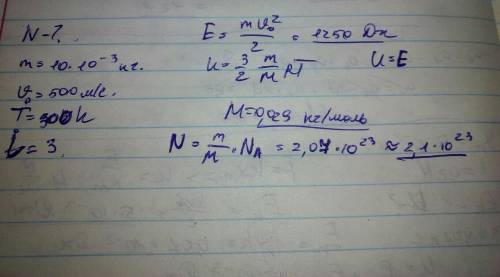 N-?
m=10·10⁻³кг.
v₀=500м/с.
T=300k
i=3.
E=mv₀²/2=1250 Дж
U=3/2 m/M RT U=E
M=0,029 кг/моль
N=m/M·N_A=2,07·10²³≈2,1·10²³